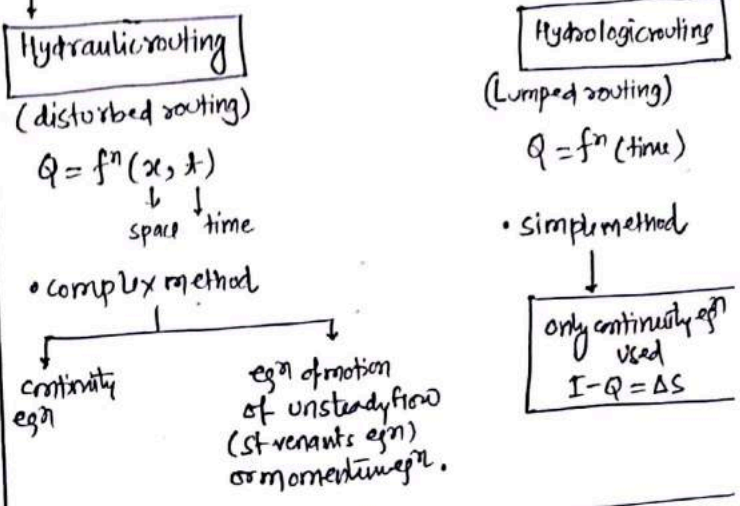 Hydraulic routing
(disturbed routing)
Q = fⁿ (x, t)
space time
• complex method
continuity
eqⁿ
eqⁿ of motion
of unsteady flow
(St venants eqⁿ)
or momentum eqⁿ.
Hydrologic routing
(Lumped routing)
Q = fⁿ (time)
• simple method
only continuity eqⁿ
used
I - Q = ΔS